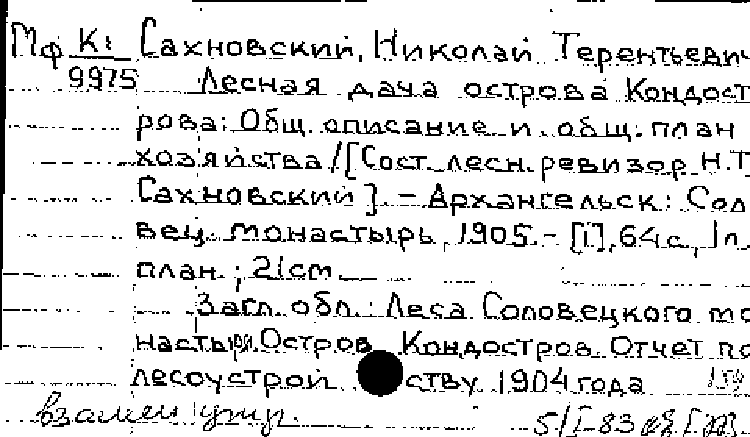 Мф К: Сахновский, Николай Терентьевич
9975 Лесная дача острова Кондост
рова: Общ. описание и общ. план
хозяйства/[Сост. лесн. ревизор Н.Т
Сахновский]. - Архангельск: Сол
вец. монастырь, 1905. - [1], 64 с., 1 л.
план.; 21 см.
Загл. обл.: Леса Соловецкого мо
настыря. Остров Кондостров. Отчет по
лесоустрой ству 1904 года 159
взамен
5/I-83